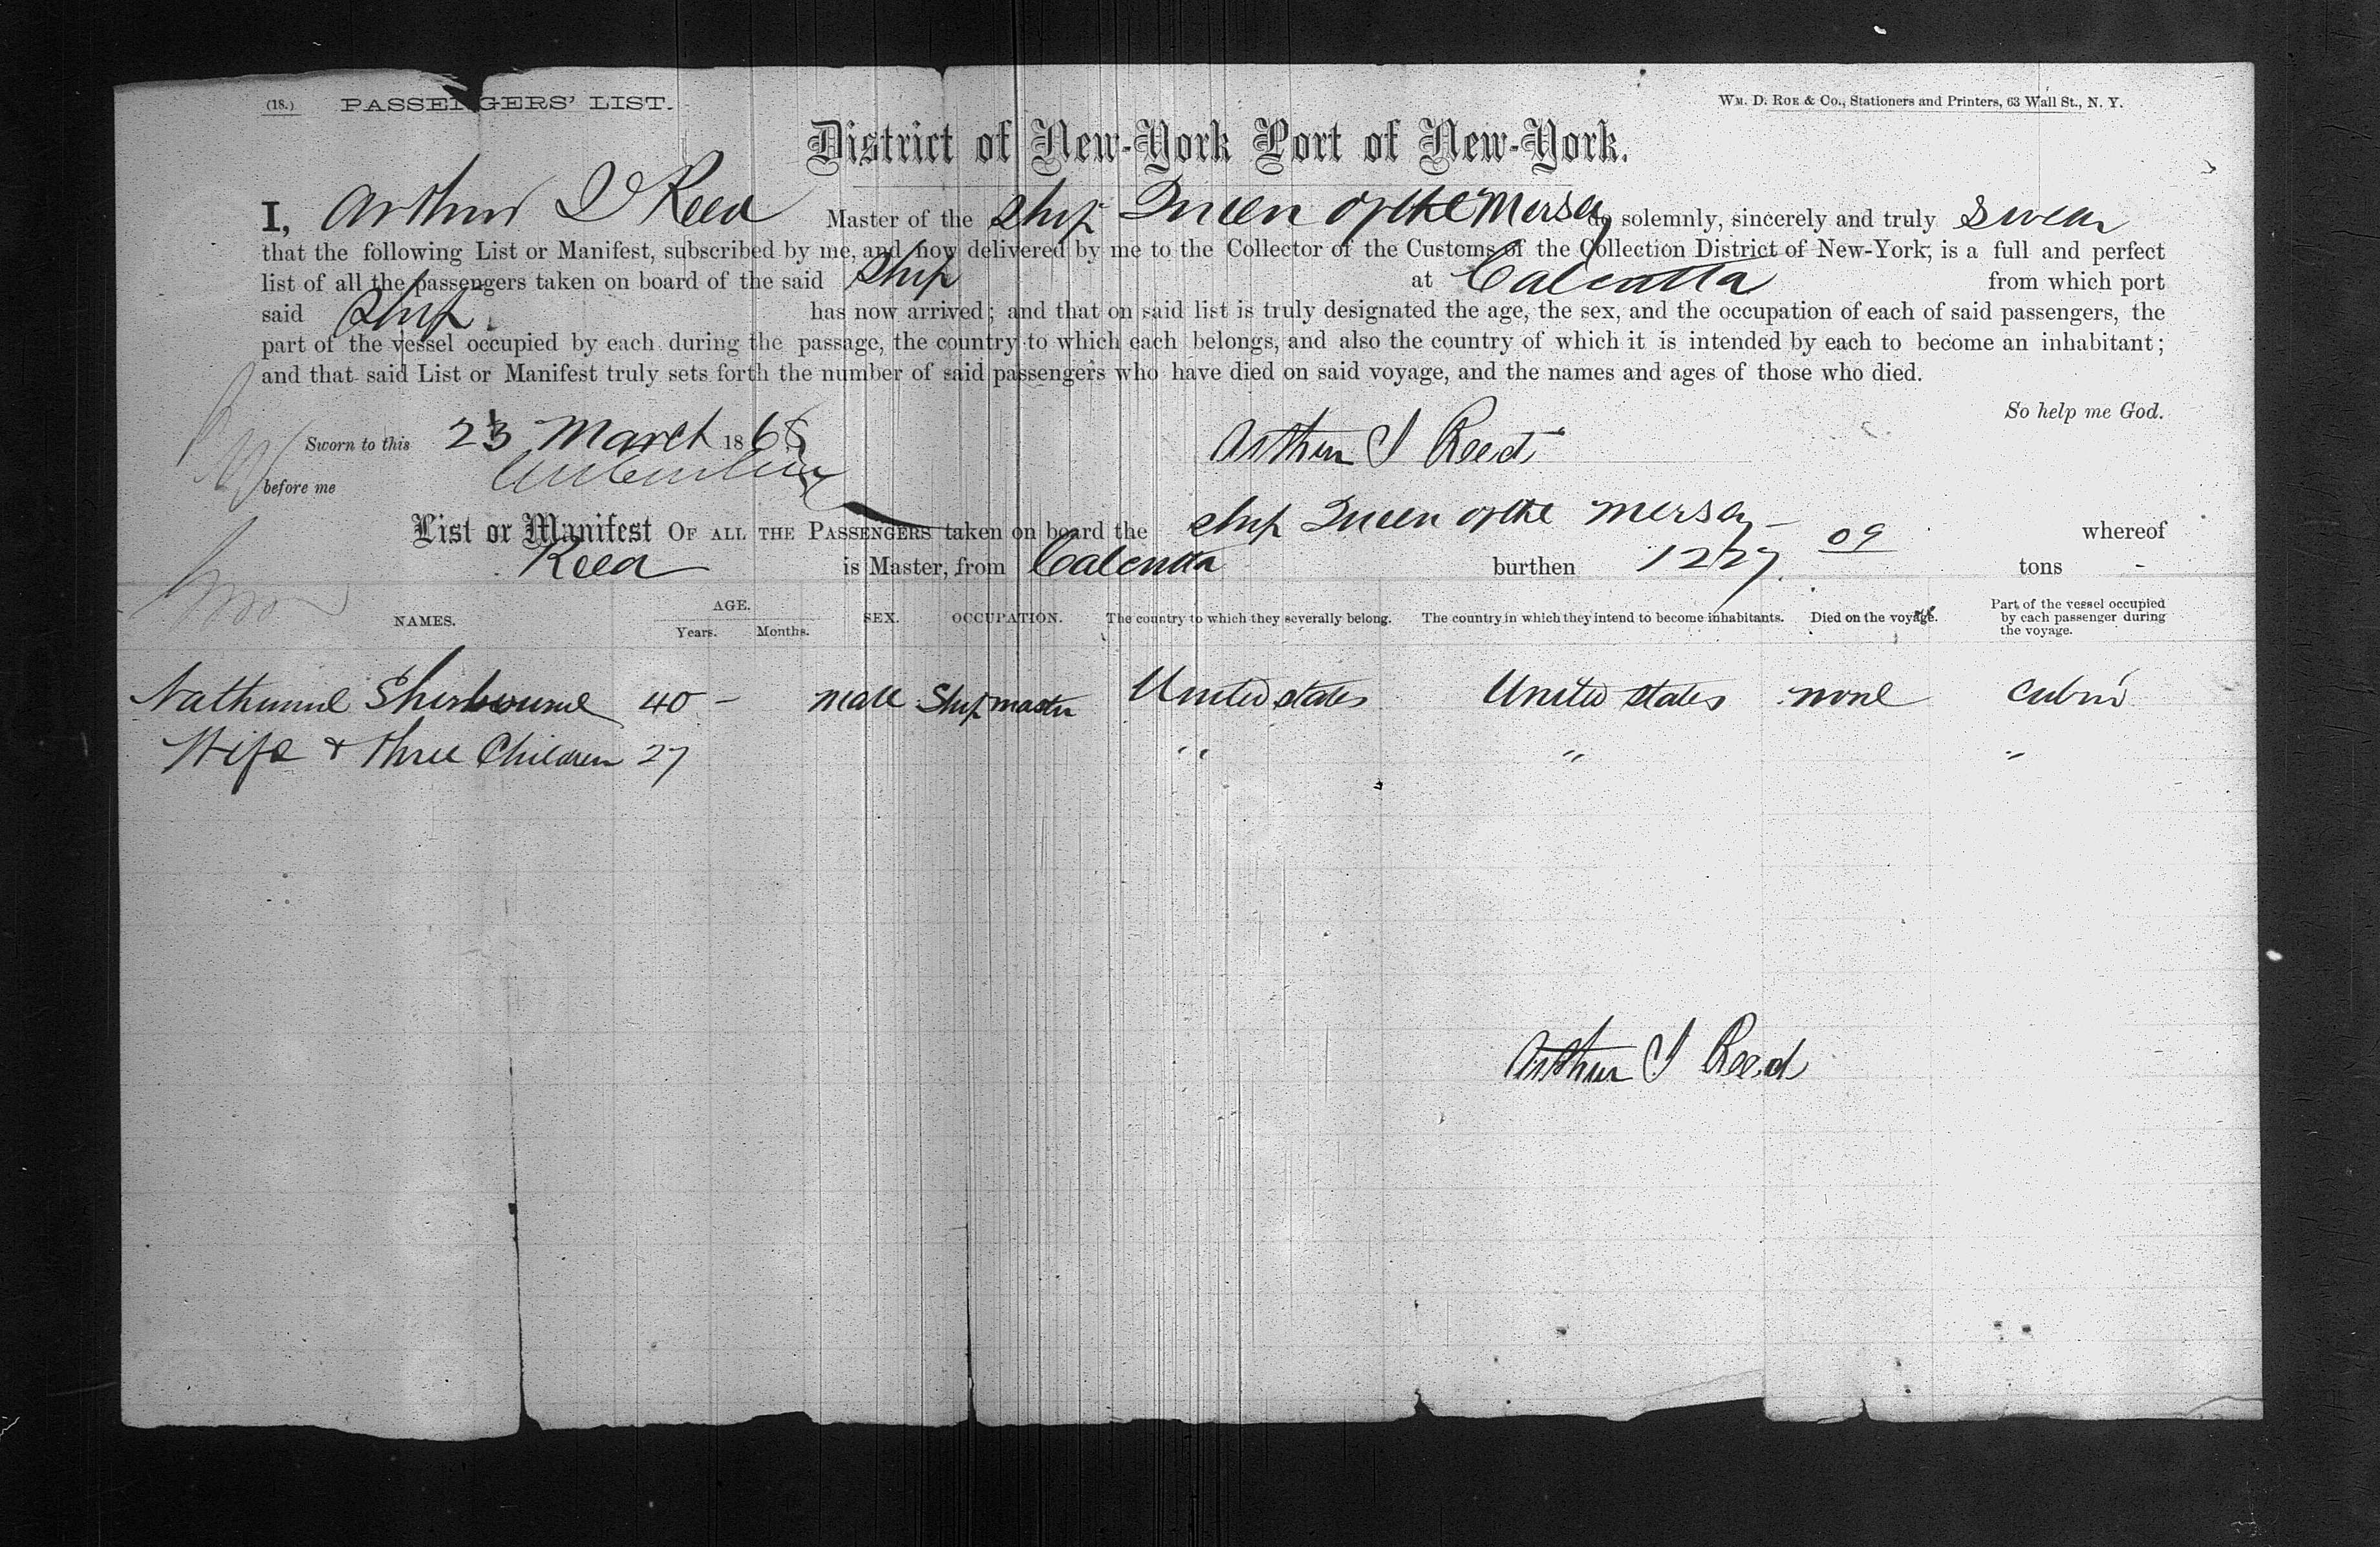 (18.) PASSENGERS' LIST.
Wm. D. Roe & Co., Stationers and Printers, 63 Wall St., N. Y.
District of New-York Port of New-York.
I, Arthur Reed Master of the Ship Queen of the Mersey do solemnly, sincerely and truly Swear
that the following List or Manifest, subscribed by me, and now delivered by me to the Collector of the Customs of the Collection District of New-York, is a full and perfect
list of all the passengers taken on board of the said Ship at Calcutta from which port
said Ship has now arrived; and that on said list is truly designated the age, the sex, and the occupation of each of said passengers, the
part of the vessel occupied by each during the passage, the country to which each belongs, and also the country of which it is intended by each to become an inhabitant;
and that said List or Manifest truly sets forth the number of said passengers who have died on said voyage, and the names and ages of those who died.
So help me God.
Sworn to this 23 March 186
Arthur Reed
before me
List or Manifest OF ALL THE PASSENGERS taken on board the Ship Queen of the Mersey whereof
Reed is Master, from Calcutta burthen 1227 09 tons -
NAMES. AGE. Years. Months. SEX. OCCUPATION. The country to which they severally belong. The country in which they intend to become inhabitants. Died on the voyage. Part of the vessel occupied by each passenger during the voyage.
Nathaniel Sherbourne 40 - male Ship master United States United States none Cabin
Wife & three Children 27 " " "
Arthur Reed